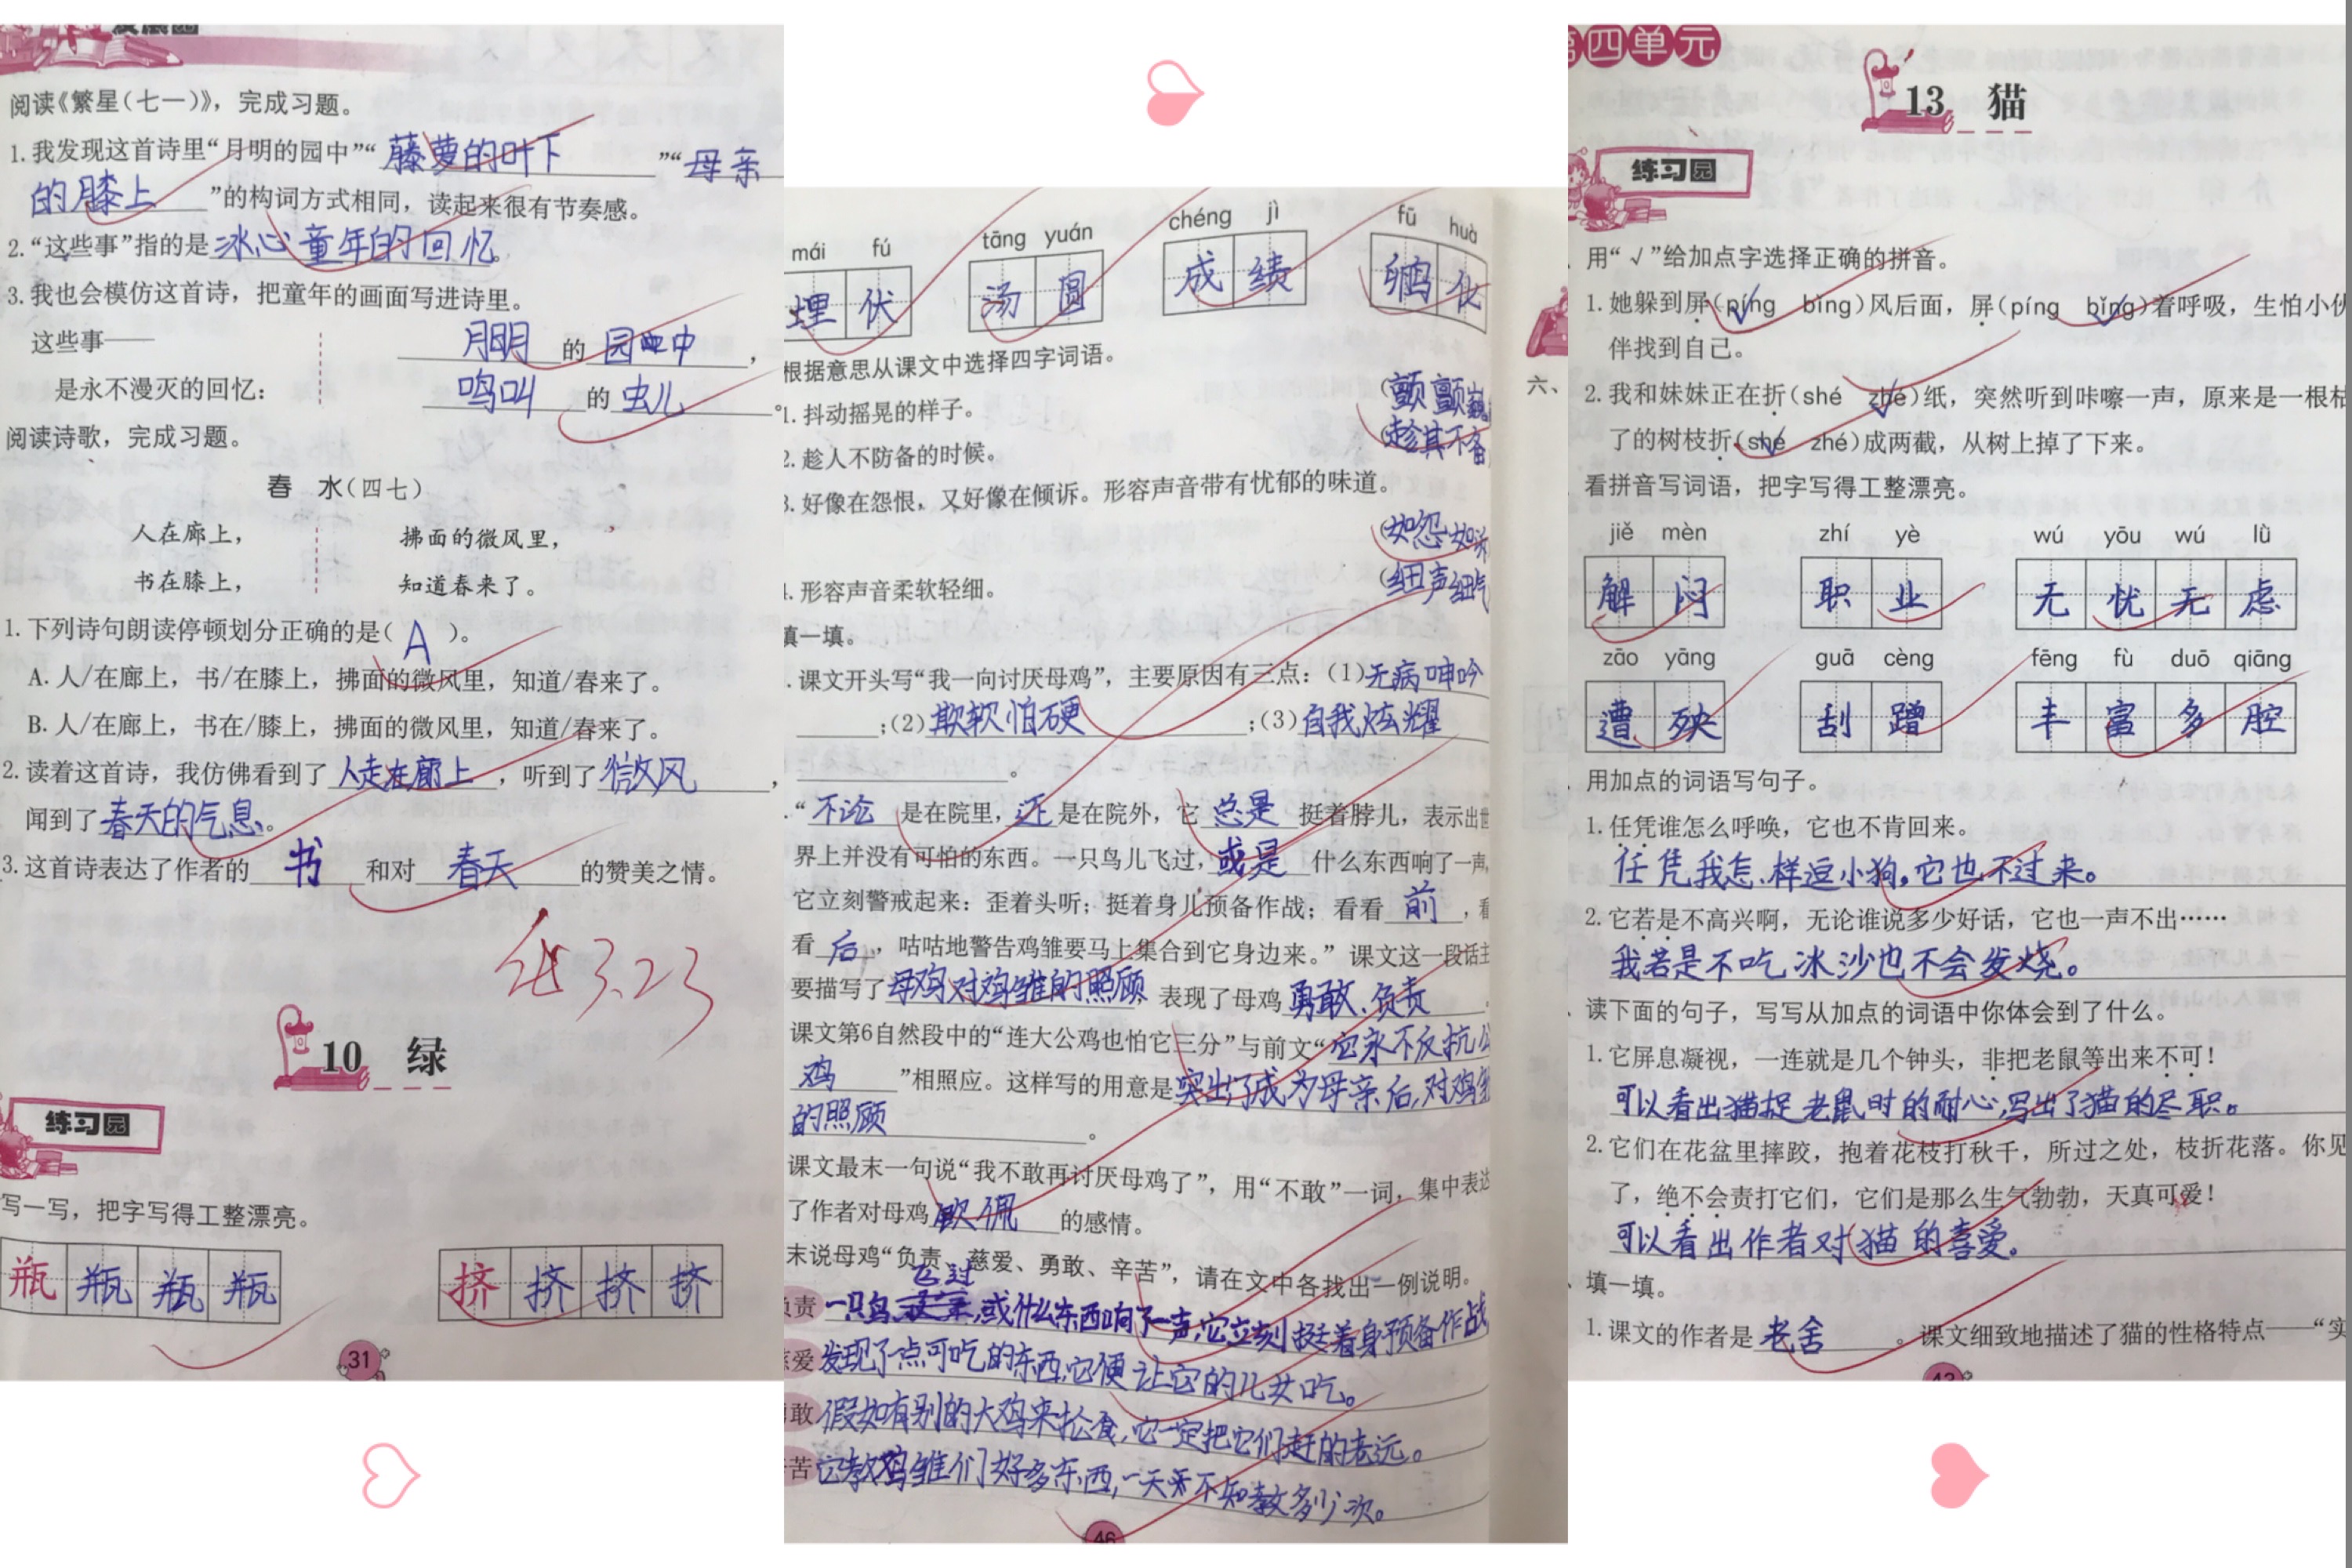 阅读《繁星(七一)》，完成习题。
1.我发现这首诗里“月明的园中”“藤萝的叶下”“母亲
的膝上”的构词方式相同，读起来很有节奏感。
2.“这些事”指的是冰心童年的回忆。
3.我也会模仿这首诗，把童年的画面写进诗里。
这些事——
是永不漫灭的回忆：
的园中，
鸣叫的虫儿。
阅读诗歌，完成习题。
春 水(四七)
人在廊上，
书在膝上，
拂面的微风里，
知道春来了。
1.下列诗句朗读停顿划分正确的是(A)。
A.人/在廊上，书/在膝上，拂面的微风里，知道/春来了。
B.人/在廊上，书在/膝上，拂面的微风里，知道/春来了。
2.读着这首诗，我仿佛看到了人走在廊上，听到了微风，
闻到了春天的气息。
3.这首诗表达了作者的书和对春天的赞美之情。
3.23
10 绿
练习园
写一写，把字写得工整漂亮。
瓶 瓶 瓶 瓶
挤 挤 挤 挤
31
mái fú
埋伏
tāng yuán
汤圆
chéng jì
成绩
fū huà
化
根据意思从课文中选择四字词语。
1.抖动摇晃的样子。
(颤颤巍
2.趁人不防备的时候。
(趁其不备
3.好像在怨恨，又好像在倾诉。形容声音带有忧郁的味道。
(如怨如诉
4.形容声音柔软轻细。
(细声细气
填一填。
课文开头写“我一向讨厌母鸡”，主要原因有三点：(1)无病呻吟
;(2)欺软怕硬;(3)自我炫耀
。
“不论是在院里，还是在院外，它总是挺着脖儿，表示出世
界上并没有可怕的东西。一只鸟儿飞过，或是什么东西响了一声，
它立刻警戒起来：歪着头听；挺着身儿预备作战；看看前，看
看后，咕咕地警告鸡雏要马上集合到它身边来。”课文这一段话主
要描写了母鸡对鸡雏的照顾 表现了母鸡勇敢、负责。
课文第6自然段中的“连大公鸡也怕它三分”与前文“它永不反抗公
鸡”相照应。这样写的用意是突出了成为母亲后，对鸡雏
的照顾。
课文最末一句说“我不敢再讨厌母鸡了”，用“不敢”一词，集中表达
了作者对母鸡钦佩的感情。
末说母鸡“负责、慈爱、勇敢、辛苦”，请在文中各找出一例说明。
负责 一只鸟飞过，或什么东西响了一声，它立刻挺着身预备作战
慈爱 发现了一点可吃的东西，它便让它的儿女吃。
勇敢 假如有别的大鸡来抢食，它一定把它们赶的老远。
辛苦 它教鸡雏们好多东西，一天来不知教多少次。
46
六、
第四单元
13 猫
练习园
用“√”给加点字选择正确的拼音。
1.她躲到屏(píng bǐng)风后面，屏(píng bǐng)着呼吸，生怕小伙
伴找到自己。
2.我和妹妹正在折(shé zhé)纸，突然听到咔嚓一声，原来是一根枯
了的树枝折(shé zhé)成两截，从树上掉了下来。
看拼音写词语，把字写得工整漂亮。
jiě mèn
解闷
zhí yè
职业
wú yōu wú lǜ
无忧无虑
zāo yāng
遭殃
guā cèng
刮蹭
fēng fù duō qiāng
丰富多腔
用加点的词语写句子。
1.任凭谁怎么呼唤，它也不肯回来。
任凭我怎样逗小狗，它也不过来。
2.它若是不高兴啊，无论谁说多少好话，它也一声不出……
我若是不吃冰沙也不会发烧。
读下面的句子，写写从加点的词语中你体会到了什么。
1.它屏息凝视，一连就是几个钟头，非把老鼠等出来不可！
可以看出猫捉老鼠时的耐心，写出了猫的尽职。
2.它们在花盆里摔跤，抱着花枝打秋千，所过之处，枝折花落。你见
了，绝不会责打它们，它们是那么生气勃勃，天真可爱！
可以看出作者对猫的喜爱。
填一填。
1.课文的作者是老舍。课文细致地描述了猫的性格特点——“实